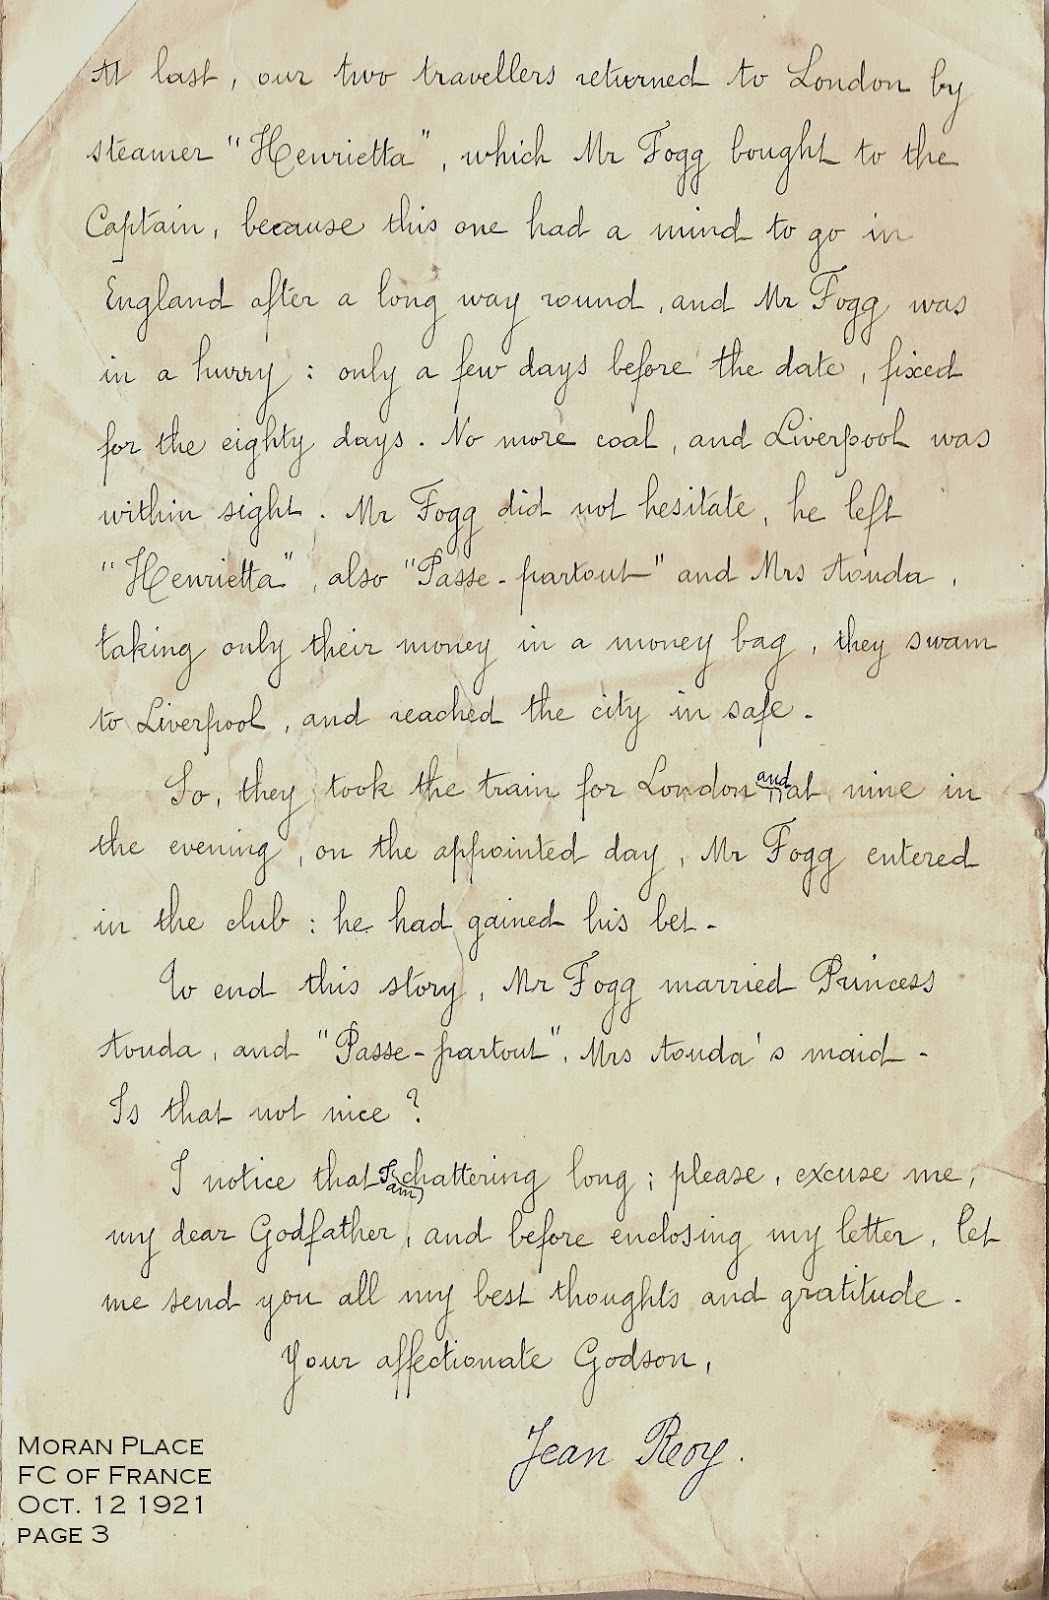 At last, our two travellers returned to London by
steamer "Henrietta", which Mr Fogg bought to the
Captain, because this one had a mind to go in
England after a long way round, and Mr Fogg was
in a hurry : only a few days before the date, fixed
for the eighty days. No more coal, and Liverpool was
within sight. Mr Fogg did not hesitate, he left
"Henrietta", also "Passe-partout" and Mrs Aouda,
taking only their money in a money bag, they swam
to Liverpool, and reached the city in safe.
So, they took the train for London and at nine in
the evening, on the appointed day, Mr Fogg entered
in the club : he had gained his bet.
To end this story, Mr Fogg married Princess
Aouda, and "Passe-partout", Mrs Aouda's maid.
Is that not nice ?
I notice that I am chattering long ; please, excuse me,
my dear Godfather, and before enclosing my letter, let
me send you all my best thoughts and gratitude.
Your affectionate Godson,
Jean Reoy.
MORAN PLACE
FC OF FRANCE
OCT. 12 1921
PAGE 3